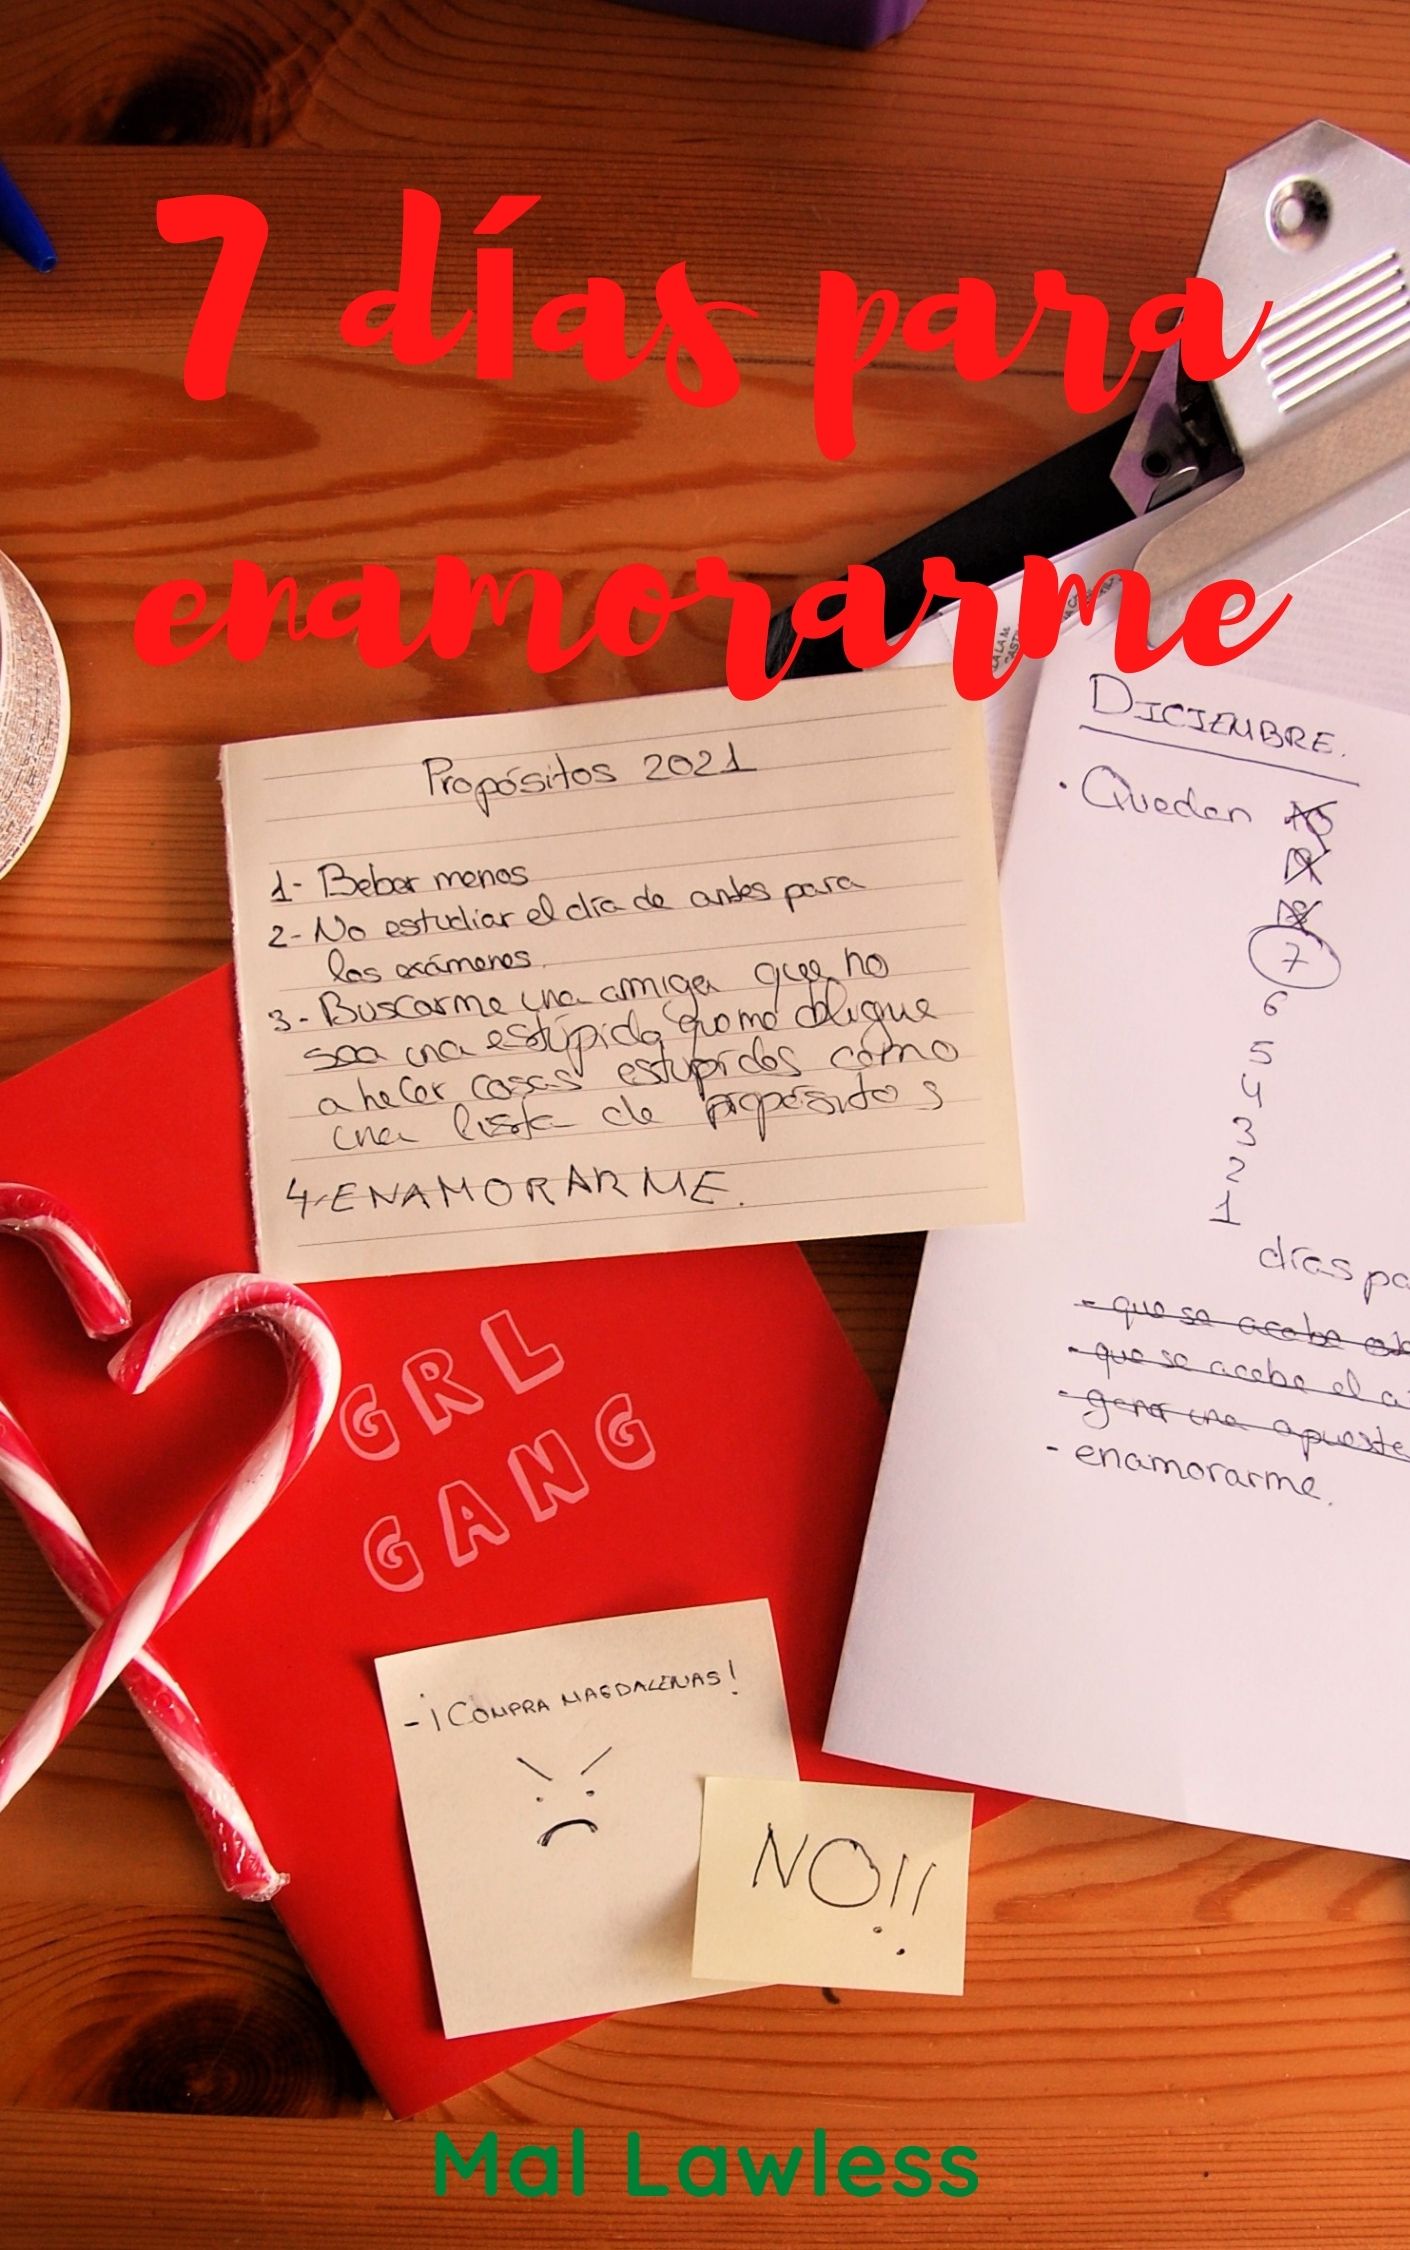 7 días para
enamorarme
Propósitos 2021
1- Beber menos
2- No estudiar el día de antes para
los exámenes.
3- Buscarme una amiga que no
sea una estúpida que me obligue
a hacer cosas estúpidas como
una lista de propósitos
4- ENAMORARME.
DICIEMBRE.
· Quedan 10
9
8
7
6
5
4
3
2
1
días pa
- que se acabe
- que se acabe el a
- ganar una apuesta
- enamorarme.
GRL
GANG
- ¡COMPRA MAGDALENAS!
NO!!
Mal Lawless